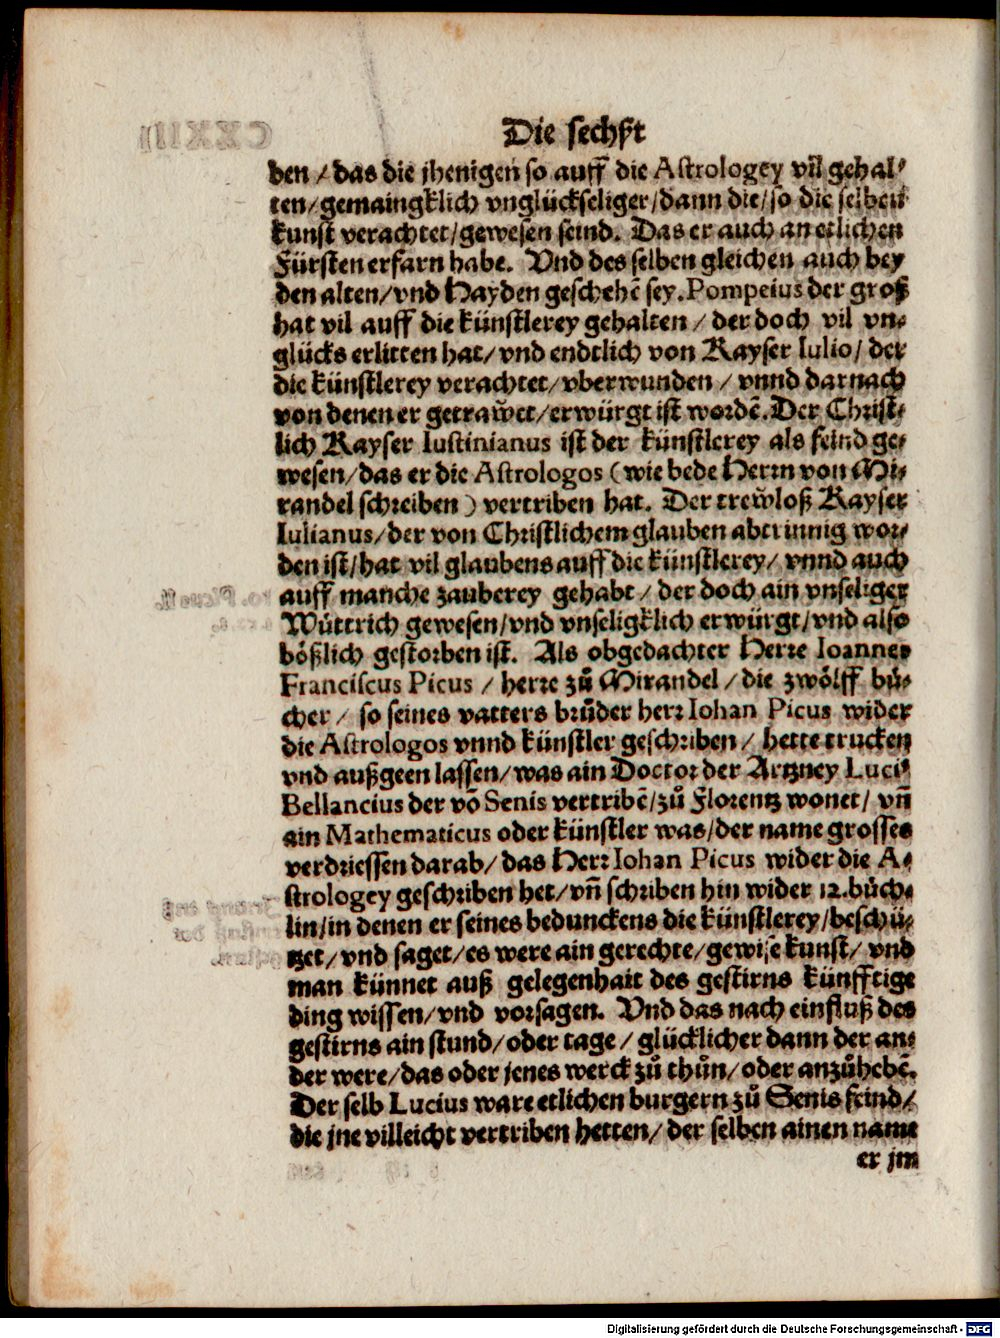 Die sechst
den / das die jhenigen so auff die Astrologey vil gehal⸗
ten/gemaingklich vnglückseliger/dann die/so die selben
kunst verachtet/gewesen seind. Das er auch an etlichen
Fürsten erfarn habe. Vnd des selben gleichen auch bey
den alten/vnd Hayden geschehē sey. Pompeius der groß
hat vil auff die künstlerey gehalten / der doch vil vn⸗
glücks erlitten hat/vnd endtlich von Kayser Iulio/ der
die künstlerey verachtet/vberwunden / vnnd darnach
von denen er getrawet/erwürgt ist wordē. Der Christ⸗
lich Kayser Iustinianus ist der künstlerey als feind ge⸗
wesen/das er die Astrologos (wie bede Herrn von Mi⸗
randel schreiben) vertriben hat. Der trewloß Kayser
Iulianus/der von Christlichem glauben abtrinnig wor⸗
den ist/hat vil glaubens auff die künstlerey/ vnnd auch
auff manche zauberey gehabt / der doch ain vnseliger
Wüttrich gewesen/vnd vnseligklich erwürgt/vnd also
bößlich gestorben ist. Als obgedachter Herre Ioannes
Franciscus Picus / herre zů Mirandel / die zwölff bü⸗
cher / so seines vatters brůder herr Iohan Picus wider
die Astrologos vnnd künstler geschriben / hette trucken
vnd außgeen lassen/was ain Doctor der Artzney Luci⸗
Bellancius der vō Senis vertribē/zů Florentz wonet/ vn̄
ain Mathematicus oder künstler was/der name grosses
verdriessen darab/das Herr Iohan Picus wider die A⸗
strologey geschriben het/vn̄ schriben hin wider 12. büch⸗
lin/in denen er seines bedunckens die künstlerey/beschü⸗
tzet/vnd saget/es were ain gerechte/gewise kunst/ vnd
man künnet auß gelegenhait des gestirns künfftige
ding wissen/vnd vorsagen. Vnd das nach einfluß des
gestirns ain stund/oder tage / glücklicher dann der an⸗
der were/das oder jenes werck zů thůn/oder anzůhebē.
Der selb Lucius ware etlichen burgern zů Senis feind/
die jne villeicht vertriben hetten/der selben ainen name
er jm
Digitalisierung gefördert durch die Deutsche Forschungsgemeinschaft - DFG